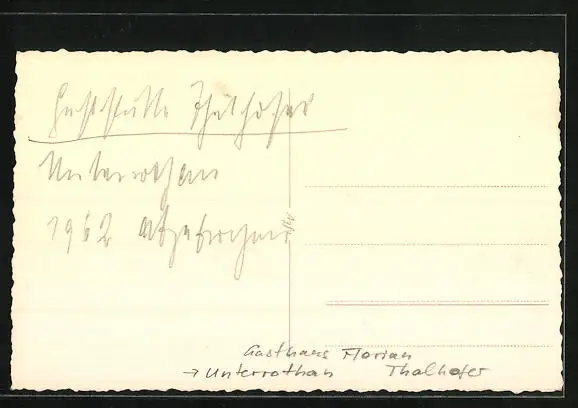 Gaststätte Thalhofer
Unterrothan
1962 abgebrochen
Gasthaus Florian
→ Unterrothan Thalhofer